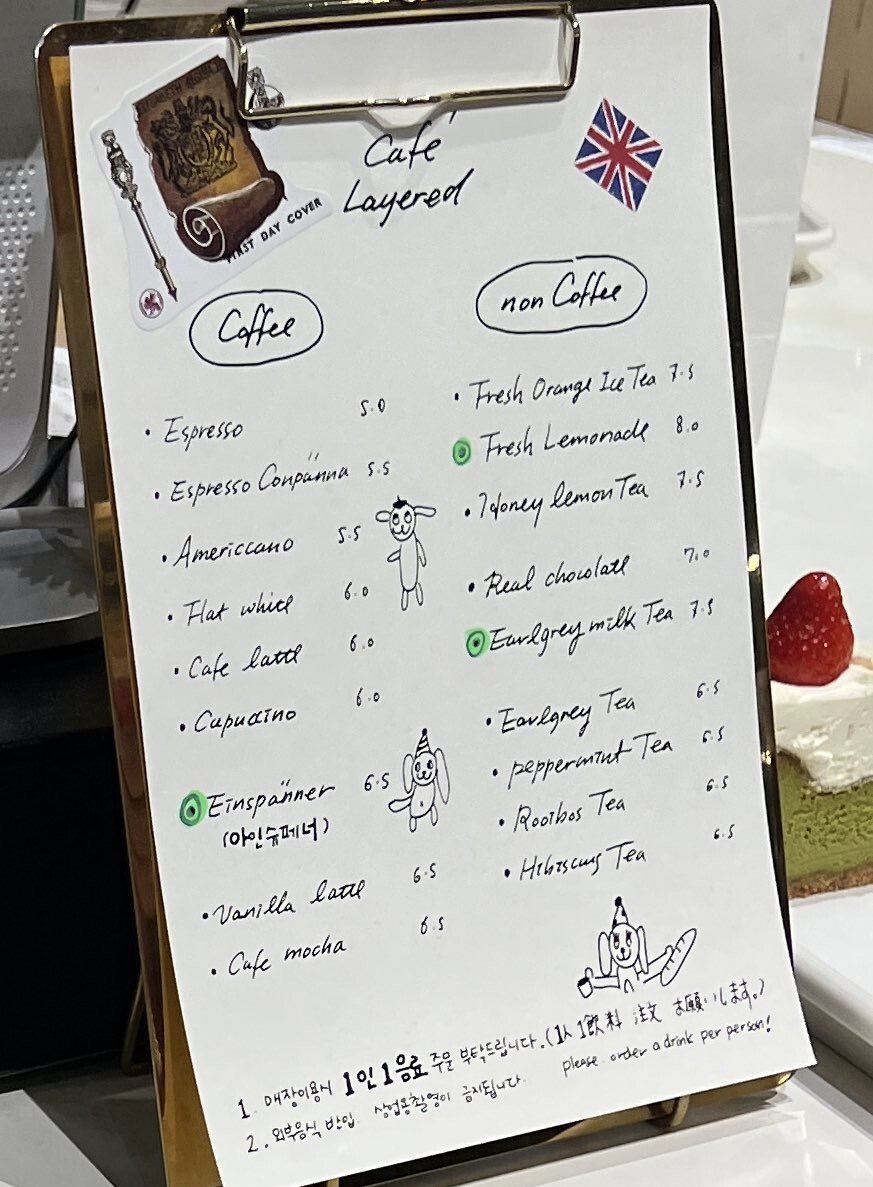 FIRST DAY COVER
Café
Layered
Coffee
• Espresso 5.0
• Espresso Conpänna 5.5
• Americcano 5.5
• Flat white 6.0
• Cafe latte 6.0
• Capuccino 6.0
Einspänner 6.5
(아인슈페너)
• Vanilla latte 6.5
• Cafe mocha 6.5
non Coffee
• Fresh Orange Ice Tea 7.5
Fresh Lemonade 8.0
• Honey lemon Tea 7.5
• Real chocolate 7.0
Earlgrey milk Tea 7.5
• Earlgrey Tea 6.5
• peppermint Tea 6.5
• Rooibos Tea 6.5
• Hibiscus Tea 6.5
1. 매장이용시 1인1음료 주문 부탁드립니다. (1人1飲料 注文 お願いします。)
please order a drink per person!
2. 외부음식 반입, 상업용촬영이 금지됩니다.